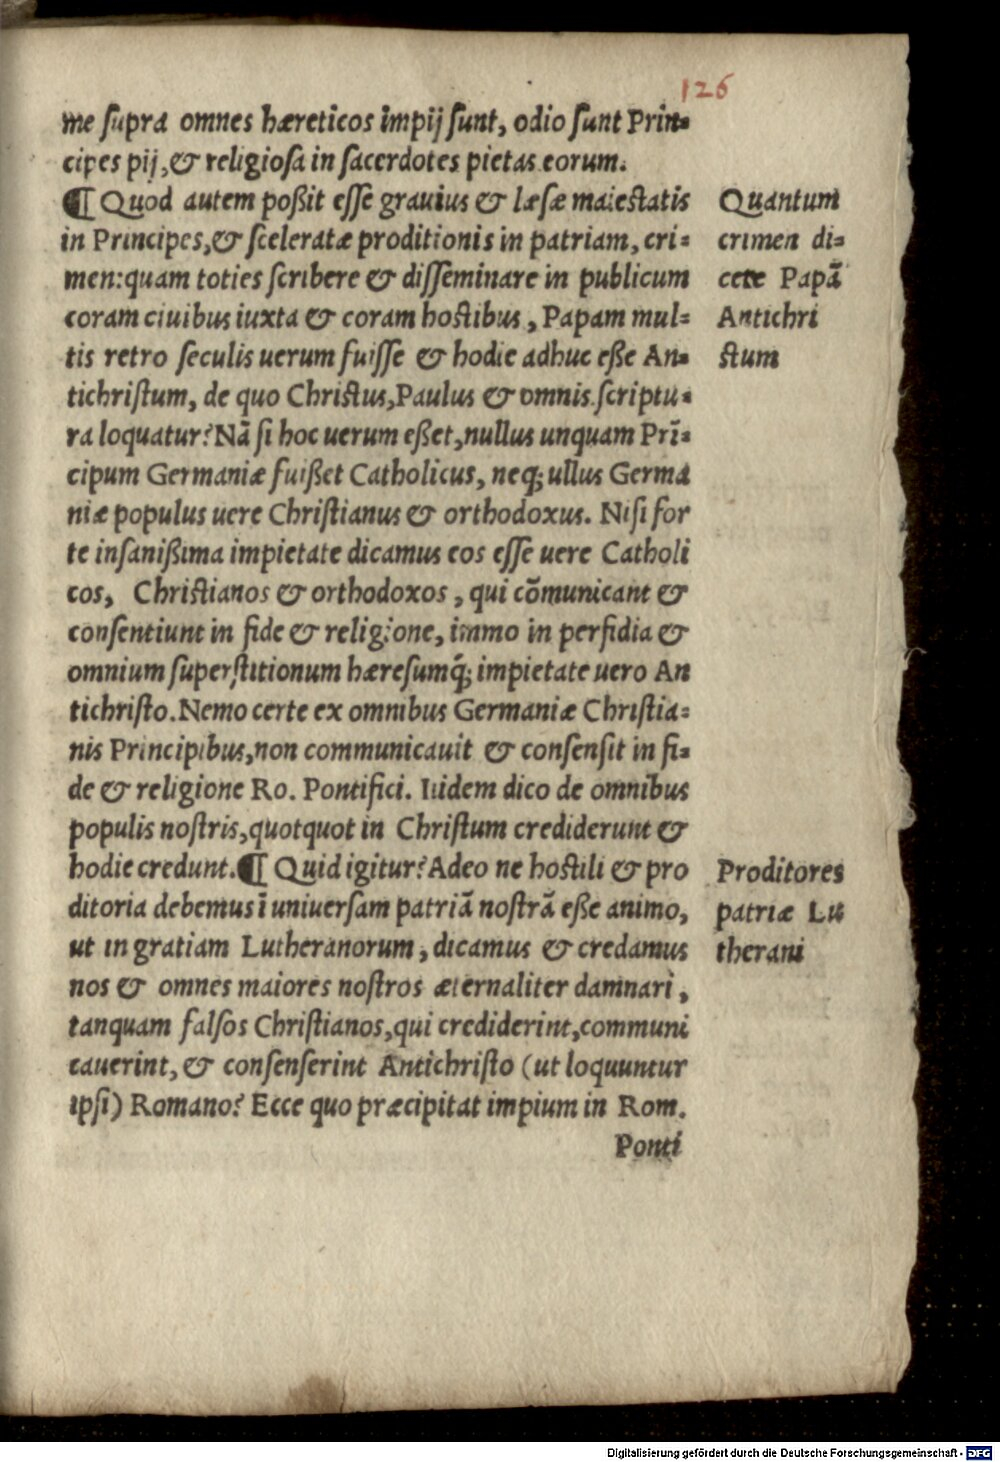 126
me supra omnes hæreticos impij sunt, odio sunt Prin=
cipes pij, & religiosa in sacerdotes pietas eorum.
¶ Quod autem poßit esse grauius & læsæ maiestatis
in Principes, & sceleratæ proditionis in patriam, cri=
men: quam toties scribere & disseminare in publicum
coram ciuibus iuxta & coram hostibus, Papam mul=
tis retro seculis uerum fuisse & hodie adhuc eße An=
tichristum, de quo Christus, Paulus & omnis scriptu=
ra loquatur? Nã si hoc uerum eßet, nullus unquam Prĩ=
cipum Germaniæ fuißet Catholicus, neq; ullus Germa
niæ populus uere Christianus & orthodoxus. Nisi for
te insanißima impietate dicamus eos esse uere Catholi
cos, Christianos & orthodoxos, qui cõmunicant &
consentiunt in fide & religione, immo in perfidia &
omnium superstitionum hæresumq́; impietate uero An
tichristo. Nemo certe ex omnibus Germaniæ Christia=
nis Principibus, non communicauit & consensit in fi=
de & religione Ro. Pontifici. Itidem dico de omnibus
populis nostris, quotquot in Christum crediderunt &
hodie credunt. ¶ Quid igitur? Adeo ne hostili & pro
ditoria debemus ĩ uniuersam patriã nostrã eße animo,
ut in gratiam Lutheranorum, dicamus & credamus
nos & omnes maiores nostros æternaliter damnari,
tanquam falsos Christianos, qui crediderint, communi
cauerint, & consenserint Antichristo (ut loquuntur
ipsi) Romano? Ecce quo præcipitat impium in Rom.
Ponti
Quantum
crimen di=
cere Papã
Antichri
stum
Proditores
patriæ Lu
therani
Digitalisierung gefördert durch die Deutsche Forschungsgemeinschaft - DFG